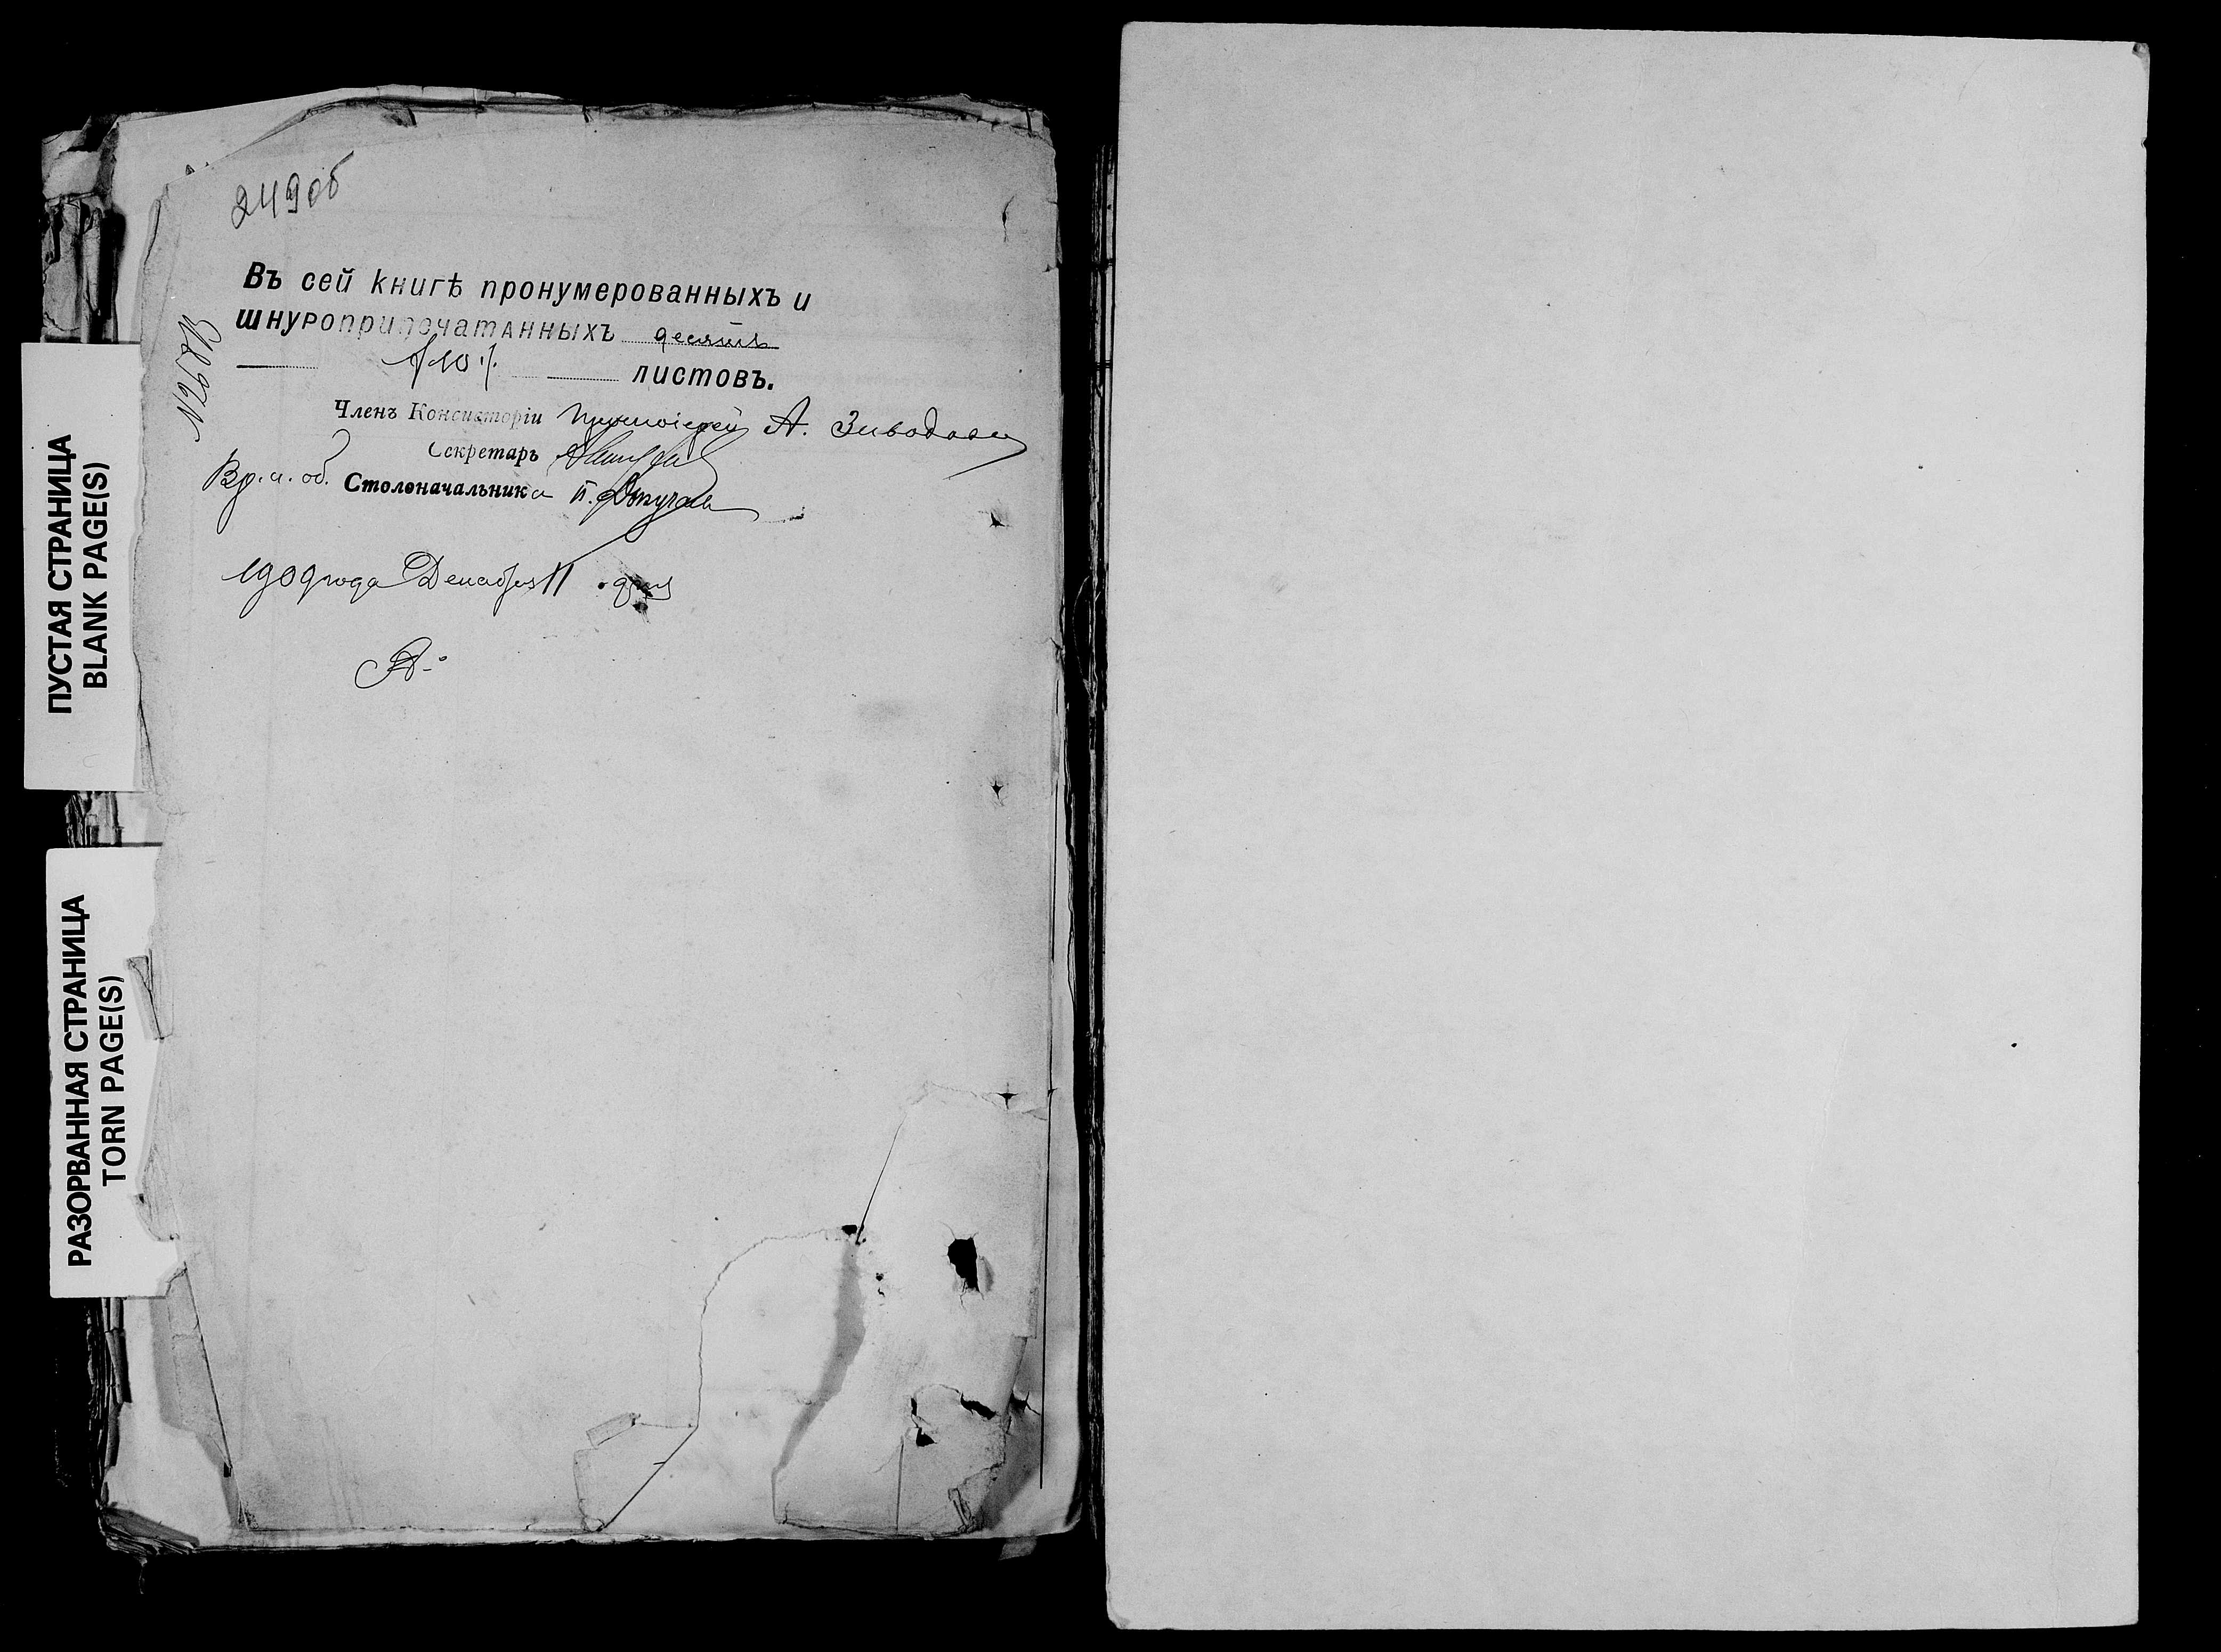 249об
Въ сей книгѣ пронумерованныхъ и
шнуроприпечатанныхъ десять
/10/
листовъ.
Членъ Консисторіи Протоіерей А.
Секретарь
Вр. и. об. Столоначальника П.
1909 года Декабря 11 дня
ПУСТАЯ СТРАНИЦА
BLANK PAGE(S)
РАЗОРВАННАЯ СТРАНИЦА
TORN PAGE(S)